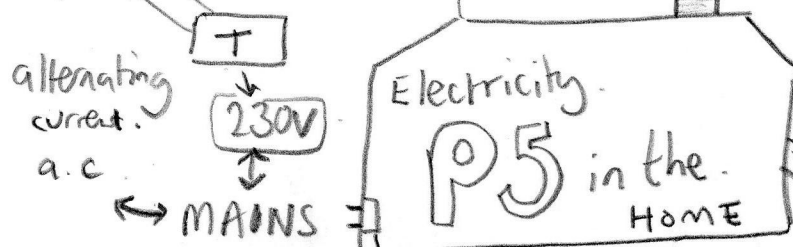 T
alternating
current.
a.c
230V
MAINS
Electricity.
P5 in the.
HOME